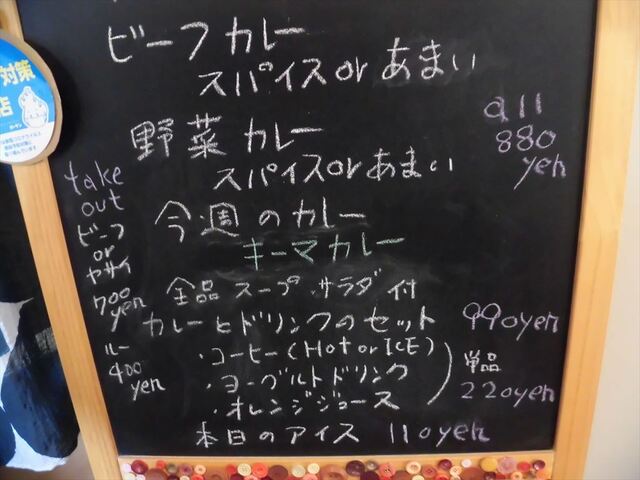 ビーフカレー
スパイスorあまい
野菜カレー
スパイスorあまい
all
880
yen
今週のカレー
キーマカレー
全品スープサラダ付
カレーとドリンクのセット 990yen
・コーヒー(Hot or ICE)
・ヨーグルトドリンク
・オレンジジュース
単品
220yen
本日のアイス 110yen
take
out
ビーフ
or
ヤサイ
700
yen
ルー
400
yen
対策
店